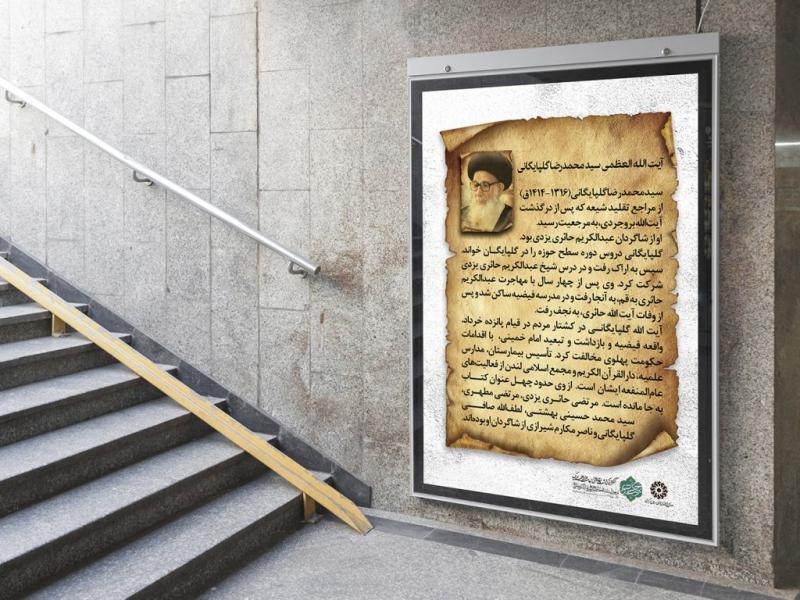 آیت الله العظمی سید محمدرضا گلپایگانی
سیدمحمدرضا گلپایگانی (۱۳۱۶-۱۴۱۴ق)
از مراجع تقلید شیعه که پس از درگذشت
آیت‌الله بروجردی، به مرجعیت رسید.
او از شاگردان عبدالکریم حائری یزدی بود.
گلپایگانی دروس دوره سطح حوزه را در گلپایگـان خواند.
سپس به اراک رفت و در درس شیخ عبدالکریم حائری یزدی
شرکت کرد. وی پس از چهار سال با مهاجرت عبدالکریم
حائری به قم، به آنجا رفت و در مدرسه فیضیه ساکن شد و پس
از وفات آیت الله حائری، به نجف رفت.
آیت الله گلپایگانـی در کشتار مردم در قیام پانزده خرداد،
واقعه فیضیه و بازداشت و تبعید امام خمینی، با اقدامات
حکومت پهلوی مخالفت کرد. تأسیس بیمارستان، مدارس
علمیه، دارالقرآن الکریم و مجمع اسلامی لندن از فعالیت‌های
عام‌المنفعه ایشان است. از وی حدود چهل عنوان کتـاب
به جا مانده است. مرتضی حائری یزدی، مرتضی مطهری،
سید محمد حسینی بهشتی، لطف‌الله صافـی
گلپایگانی و ناصر مکارم شیرازی از شاگردان او بوده‌اند.